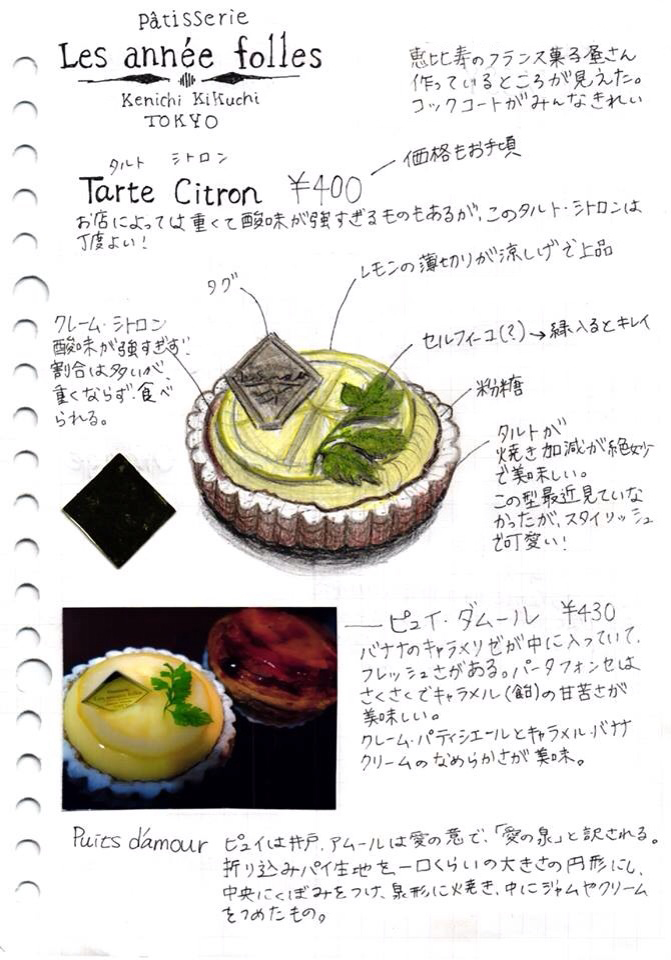 Pâtisserie
Les année folles
Kenichi Kikuchi
TOKYO
恵比寿のフランス菓子屋さん
作っているところが見えた。
コックコートがみんなきれい
タルト シトロン
Tarte Citron ¥400
価格もお手頃
お店によっては重くて酸味が強すぎるものもあるが、このタルト・シトロンは
丁度よい!
タグ
レモンの薄切りが涼しげで上品
クレーム・シトロン
酸味が強すぎず
割合は多いが、
重くならず食べ
られる。
セルフィーユ(?)→緑入るとキレイ
粉糖
タルトが
焼き加減が絶妙
で美味しい。
この型最近見ていな
かったが、スタイリッシュ
で可愛い!
ピュイ・ダムール ¥430
バナナのキャラメリゼが中に入っていて、
フレッシュさがある。パータフォンセは
さくさくでキャラメル(飴)の甘苦さが
美味しい。
クレーム・パティシエールとキャラメル・バナナ
クリームのなめらかさが美味。
Les années folles
Puits d'amour
ピュイは井戸、アムールは愛の意で、「愛の泉」と訳される。
折り込みパイ生地を一口くらいの大きさの円形にし、
中央にくぼみをつけ、泉形に焼き、中にジャムやクリーム
をつめたもの。